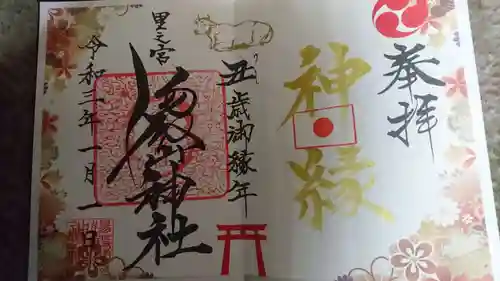 奉拝
神縁
丑歳御縁年
里之宮
湯殿山神社
令和三年一月一日